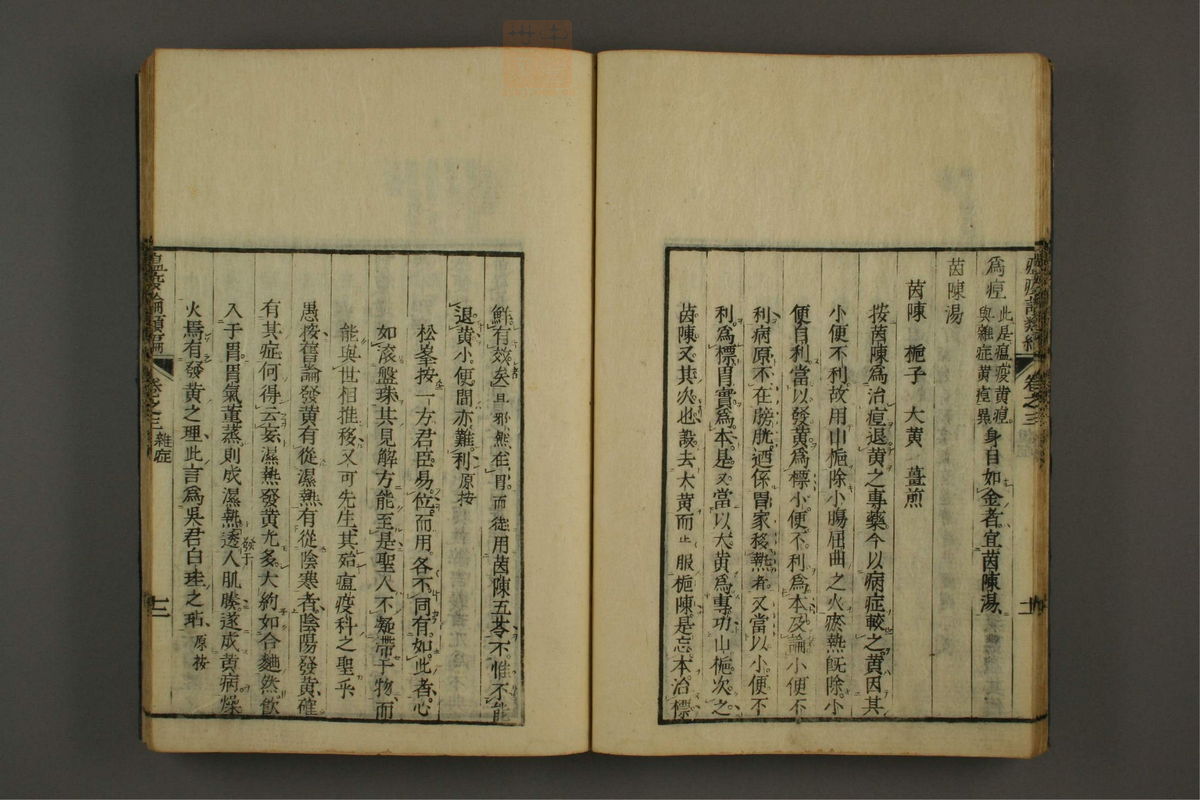 瘟疫論類編 卷之三
爲疸 此是瘟疫黃疸與雜症黃疸異 身目如金者宜茵陳湯
茵陳湯
茵陳 梔子 大黃 薑煎
按茵陳爲治疸退黃之專藥今以病症較之黃因其
小便不利故用山梔除小腸屈曲之火瘀熱既除小
便自利當以發黃爲標小便不利爲本及論小便不
利病原不在膀胱迺係胃家移熱者又當以小便不
利爲標胃實爲本是又當以大黃爲專功山梔次之
茵陳又其次也設去大黃而止服梔陳是忘本治標
鮮有效矣且邪熱在胃而徒用茵陳五苓不惟不能
退黃小便間亦難利 原按
松峯按一方君臣易位而用各不同有如此者心
如滾盤珠其見解方能至是聖人不疑滯于物而
能與世相推移又可先生其殆瘟疫科之聖乎
愚按舊論發黃有從濕熱有從陰寒者陰陽發黃確
有其症何得云妄濕熱發黃尤多大約如合麯然飲
入于胃胃氣薰蒸則成濕熱透發于人肌腠遂成黃病燥
火焉有發黃之理此言爲吳君白珪之玷 原按
瘟疫論類編 卷之三 雜症